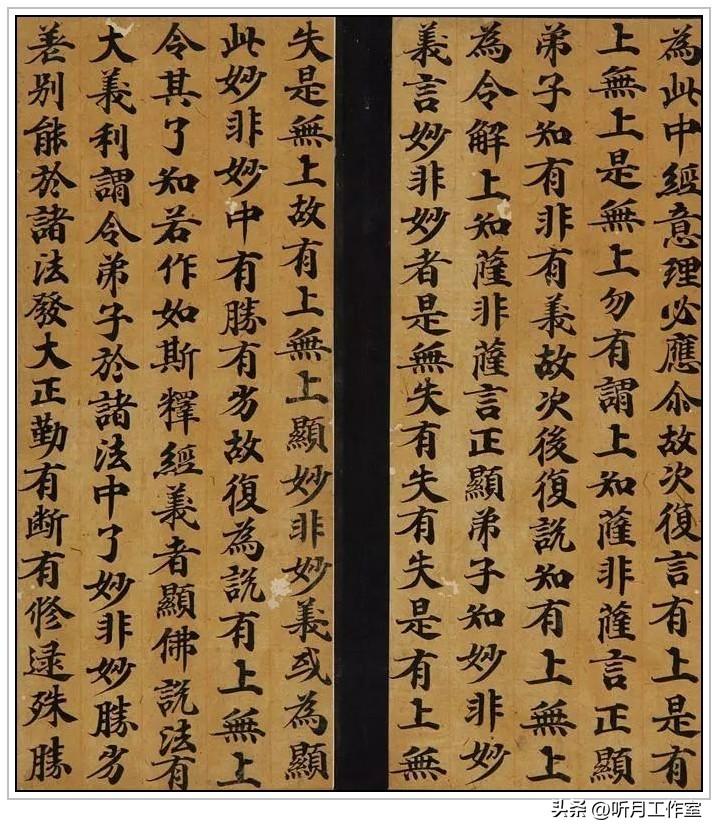 為此中經意理必應尒故次復言有上是有
上無上是無上勿有謂上知薩非薩言正顯
弟子知有非有義故次後復説知有上無上
為令解上知薩非薩言正顯弟子知妙非妙
義言妙非妙者是無失有失有失是有上無
失是無上故有上無上顯妙非妙義或為顯
此妙非妙中有勝有劣故復為説有上無上
令其了知若作如斯釋經義者顯佛説法有
大義利謂令弟子於諸法中了妙非妙勝劣
差別能於諸法發大正勤有断有修逮殊勝
头条 @听月工作室